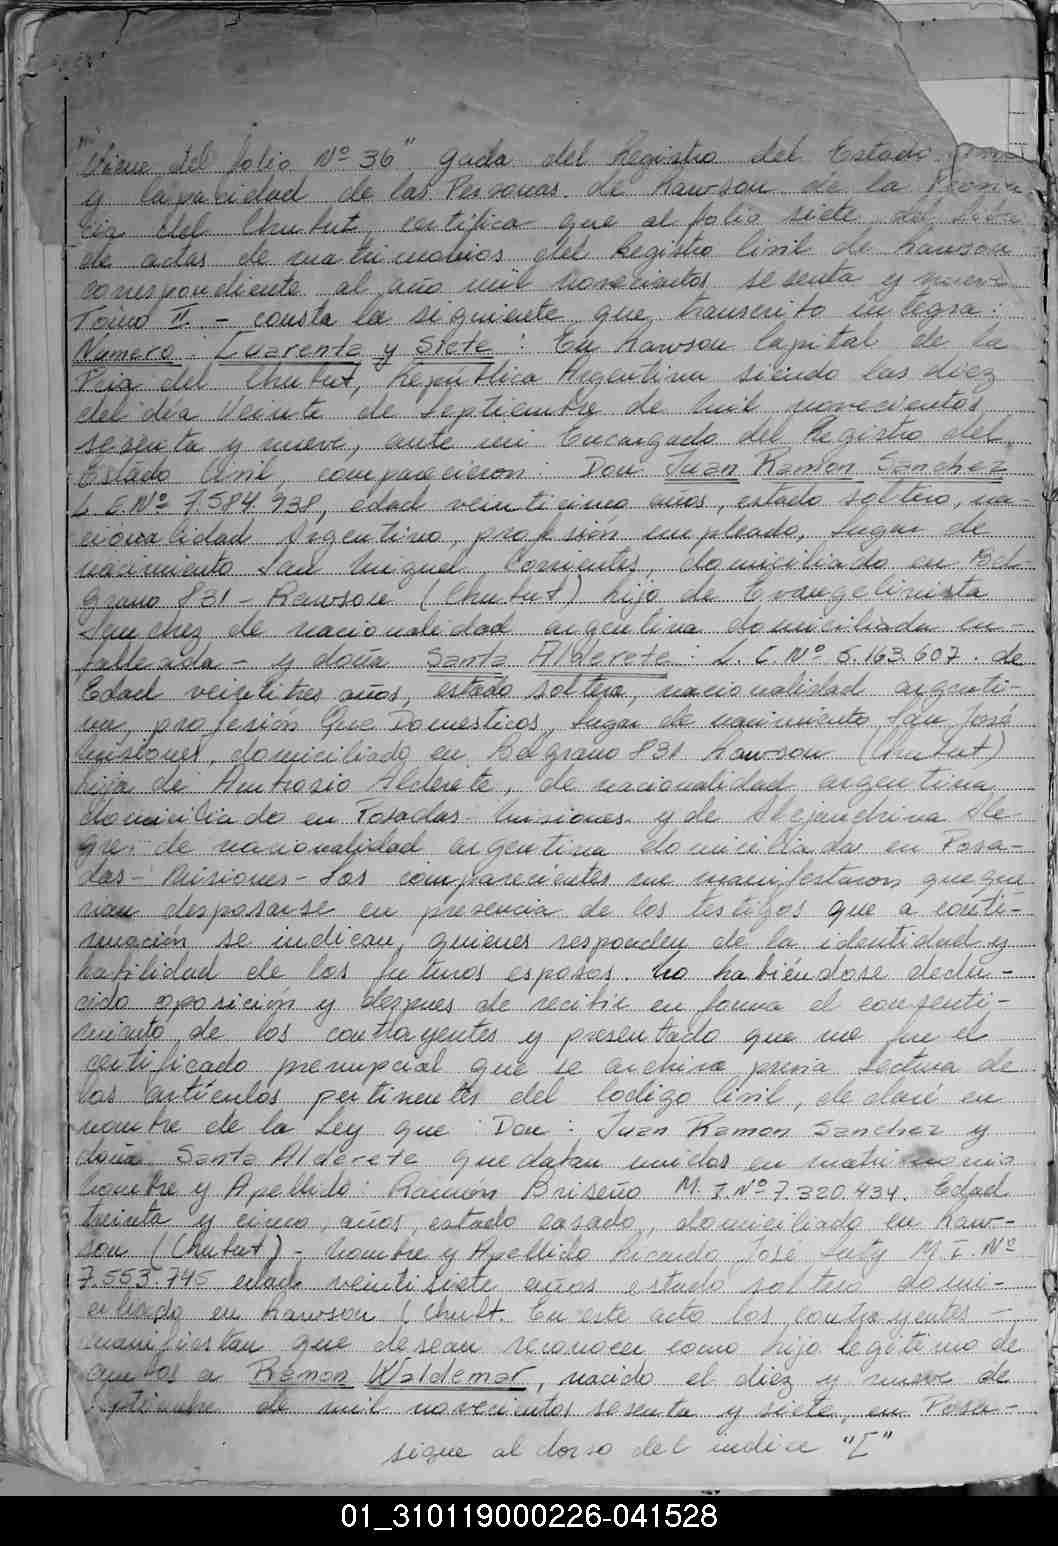 "Viene del folio Nº 36" gada del Registro del Estado
y Capacidad de las Personas de Rawson de la Provin
cia del Chubut, certifica que al folio siete del libro
de actas de matrimonios del Registro Civil de Rawson
correspondiente al año mil novecientos sesenta y nueve
Tomo II - consta la siguiente que transcrito integra:
Numero: Cuarenta y Siete: En Rawson Capital de la
Pcia del Chubut, República Argentina siendo las diez
del día veinte de Septiembre de mil novecientos
sesenta y nueve, ante mi Encargado del Registro del
Estado Civil, comparecieron: Don Juan Ramon Sanchez
L. E. Nº 7.584.938, edad veinticinco años, estado soltero, na-
cionalidad Argentino, profesión empleado, lugar de
nacimiento San Miguel, Corrientes, domiciliado en Bel-
grano 831 - Rawson (Chubut) hijo de Evangelinista
Sanchez de nacionalidad argentina domiciliada en -
falleada - y doña Santa Alderete: L. C. Nº 5.163.607. de
Edad veintitres años, estado soltera, nacionalidad argenti-
na, profesión Que Domesticos, lugar de nacimiento San José
Misiones, domiciliado en Belgrano 831 Rawson (Chubut)
hija de Ambrosio Alderete, de nacionalidad argentina
domiciliado en Posadas - Misiones y de Alejandrina Ale-
gre: de nacionalidad argentina domiciliada en Posa-
das - Misiones - Los comparecientes me manifestaron que que
rian desposarse en presencia de los testigos que a conti-
nuación se indican, quienes responden de la identidad y
habilidad de los futuros esposos. No habiéndose dedu-
cido oposición y despues de recibir en forma el consenti-
miento de los contrayentes y presentado que me fue el
certificado prenupcial que se archiva previa lectura de
los artículos pertinentes del Codigo Civil, declaré en
nombre de la Ley que: Don: Juan Ramon Sanchez y
doña Santa Alderete quedaban unidos en matrimonio
Nombre y Apellido: Ramón Briseño M. I. Nº 7.320.434. Edad
treinta y cinco, años, estado casado, domiciliado en Raw-
son (Chubut) - Nombre y Apellido Ricardo José M. I. Nº
7.553.745 edad veintisiete años estado soltero domi-
ciliado en Rawson (Chubt. En este acto los contrayentes -
manifiestan que desean reconocer como hijo legitimo de
ambos a Ramon Waldemar, nacido el diez y nueve de
Septiembre de mil novecientos sesenta y siete, en Posa-
sigue al dorso del indice "C"
01_310119000226-041528